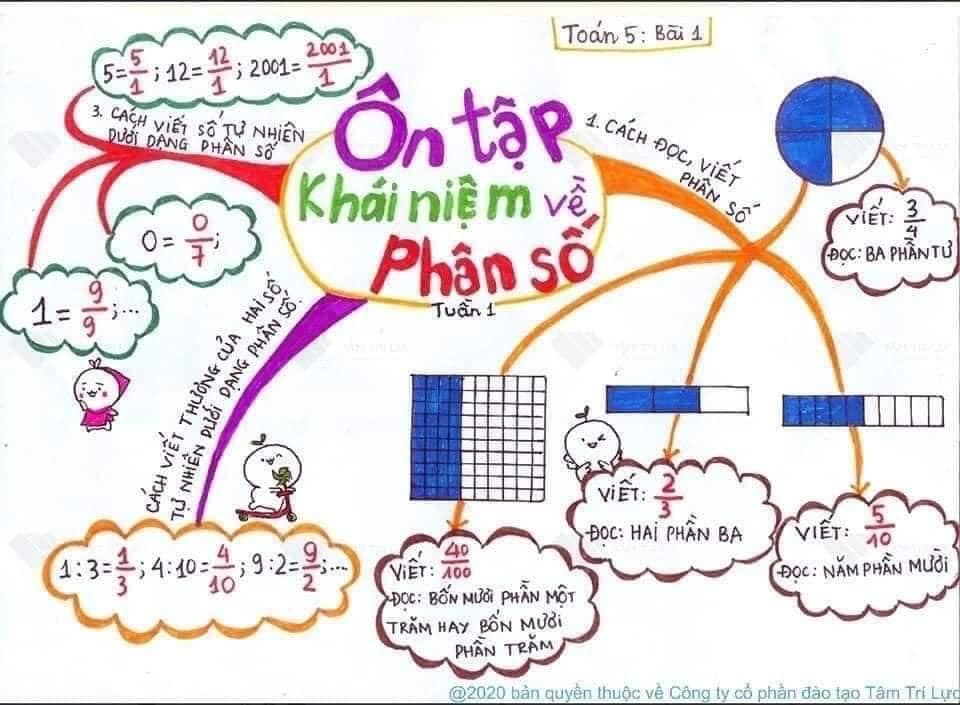 Toán 5: Bài 1
Ôn tập
Khái niệm về
Phân số
Tuần 1
1. CÁCH ĐỌC, VIẾT
PHÂN SỐ
VIẾT: 3/4
ĐỌC: BA PHẦN TƯ
VIẾT: 5/10
ĐỌC: NĂM PHẦN MƯỜI
VIẾT: 2/3
ĐỌC: HAI PHẦN BA
VIẾT: 40/100
ĐỌC: BỐN MƯƠI PHẦN MỘT
TRĂM HAY BỐN MƯƠI
PHẦN TRĂM
CÁCH VIẾT THƯƠNG CỦA HAI SỐ
TỰ NHIÊN DƯỚI DẠNG PHÂN SỐ.
1:3=1/3; 4:10=4/10; 9:2=9/2;...
3. CÁCH VIẾT SỐ TỰ NHIÊN
DƯỚI DẠNG PHÂN SỐ
5=5/1; 12=12/1; 2001=2001/1
0=0/7;
1=9/9;...
@2020 bản quyền thuộc về Công ty cổ phần đào tạo Tâm Trí Lực